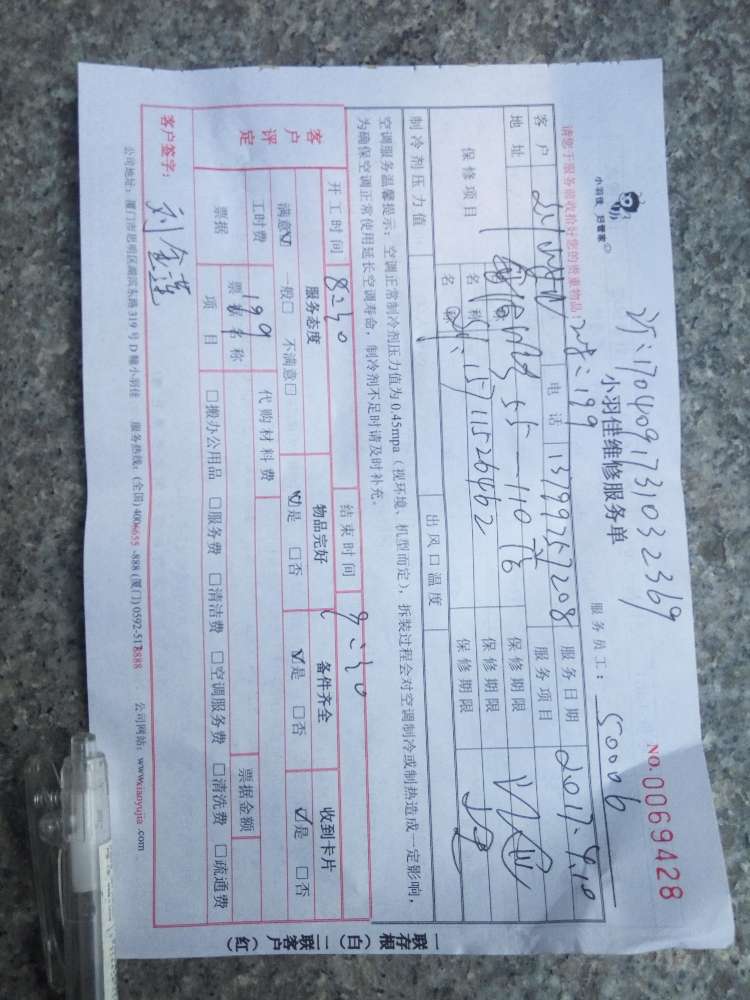 订:1704091731032369
小羽佳 好管家
小羽佳维修服务单
NO.0069428
请您于服务前收拾好您的贵重物品!
服务员工: 50006
客户 电话 13799257208 服务日期 2017.4.10
地址 服务项目
保修项目 名称 保修期限
名称 保修期限
15711526462
制冷剂压力值 出风口温度 保修期限
空调服务温馨提示:空调正常制冷剂压力值为0.45mpa(视环境、机型而定),拆装过程会对空调制冷或制热造成一定影响,
为确保空调正常使用延长空调寿命,制冷剂不足时请及时补充。
客户评定
开工时间 8:30 结束时间 9:30
服务态度 物品完好 备件齐全 收到卡片
满意☑ 一般□ 不满意□ ☑是 □否 ☑是 □否 ☑是 □否
工时费 199 代购材料费 票据金额
票据 票据名称
项目 □搬办公用品 □服务费 □清洁费 □空调服务费 □清洗费 □疏通费
客户签字: 刘金莲
公司地址:厦门市思明区湖滨东路319号D幢小羽佳 服务热线:(全国)400-655-888 (厦门)0592-5178888 公司网站:www.xiaoyujia.com
一联存根(白)二联客户(红)